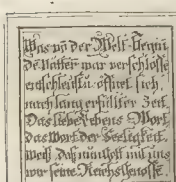 Was vō der Welt-Begin
de Vätter war verschlossē
entschleist ū öffnet sich
nach lang erfüllter Zeit.
Das liebe Lebens Wort
das Wort der Seeligkeit.
weil daß nun Gott mit uns
wir seine Reichsgenosse.